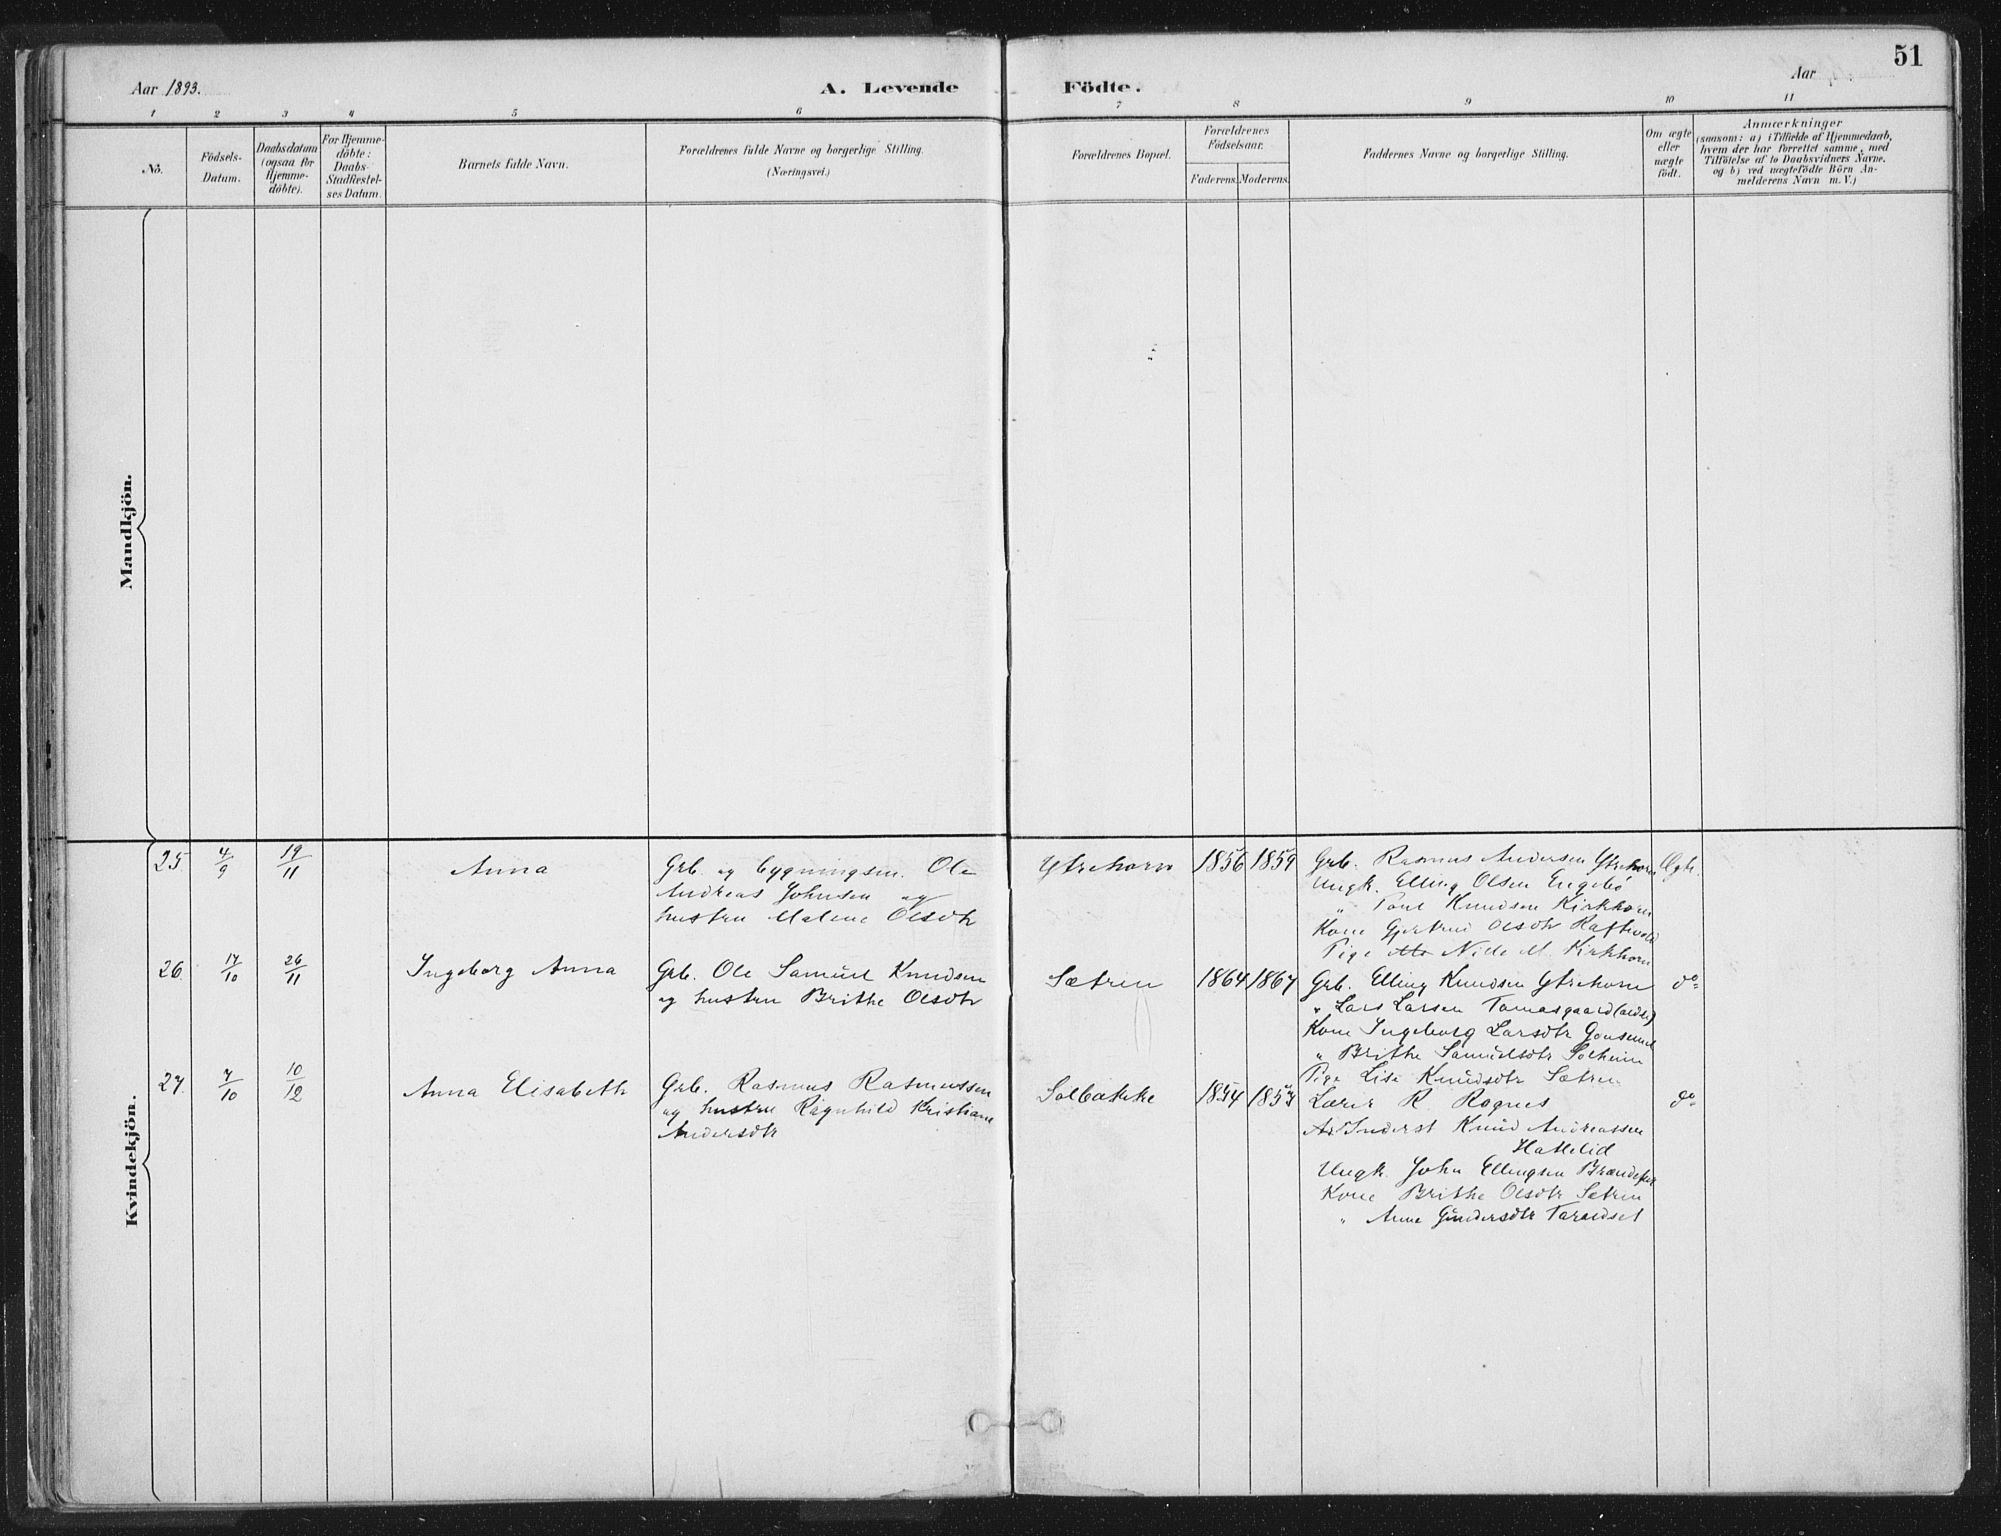 51
Aar 1893.
A. Levende Födte.
Aar
1 2 3 4 5 6 7 8 9 10 11
No.
Födsels-
Datum.
Daabsdatum
(ogsaa for
Hjemme-
döbte).
For Hjemme-
döbte:
Daabs-
Stadfæstel-
ses Datum.
Barnets fulde Navn.
Forældrenes fulde Navne og borgerlige Stilling.
(Næringsvei.)
Forældrenes Bopæl.
Forældrenes
Födselsaar.
Faderens. Moderens.
Faddernes Navne og borgerlige Stilling.
Om ægte
eller
uægte
födt.
Anmærkninger
(saasom: a) i Tilfælde af Hjemmedaab,
hvem der har forrettet samme, med
Tilföielse af to Daabsvidners Navne.
og b) ved uægtefödte Börn An-
melderens Navn m. V.)
Mandkjön.
Kvindekjön.
25. 4/9 19/11 Anna
Grb. og bygningsm. Ole
Andreas Johnsen og
hustru Malene Olsdtr
Ytrehorn 1856 1859
Grb. Rasmus Andersen Ytrehorn
Ungk. Elling Olsen Engebö
" Poul Knudsen Kirkhorn
Kone Gjertrud Olsdtr Raftevold
Pige Nille M. Kirkhorn
Ægte.
26. 17/10 26/11 Ingeborg Anna
Grb. Ole Samuel Knudsen
og hustru Brithe Olsdtr
Sætren 1864 1867
Grb. Elling Knudsen Ytrehorn
" Lars Larsen Tomasgaard
Kone Ingeborg Larsdtr
" Brithe Samuelsdtr Solheim
Pige Lise Knudsdtr Sætren
do
27. 7/10 10/12 Anna Elisabeth
Grb. Rasmus Rasmussen
og hustru Ragnhild Kristiane
Andersdtr
Solbakke 1854 1853
Lærer R Rognes
Knud Andreassen
Hattelid
Ungk. John Ellingsen
Kone Brithe Olsdtr Sætren
" Anne Gundersdtr Taraldset
do